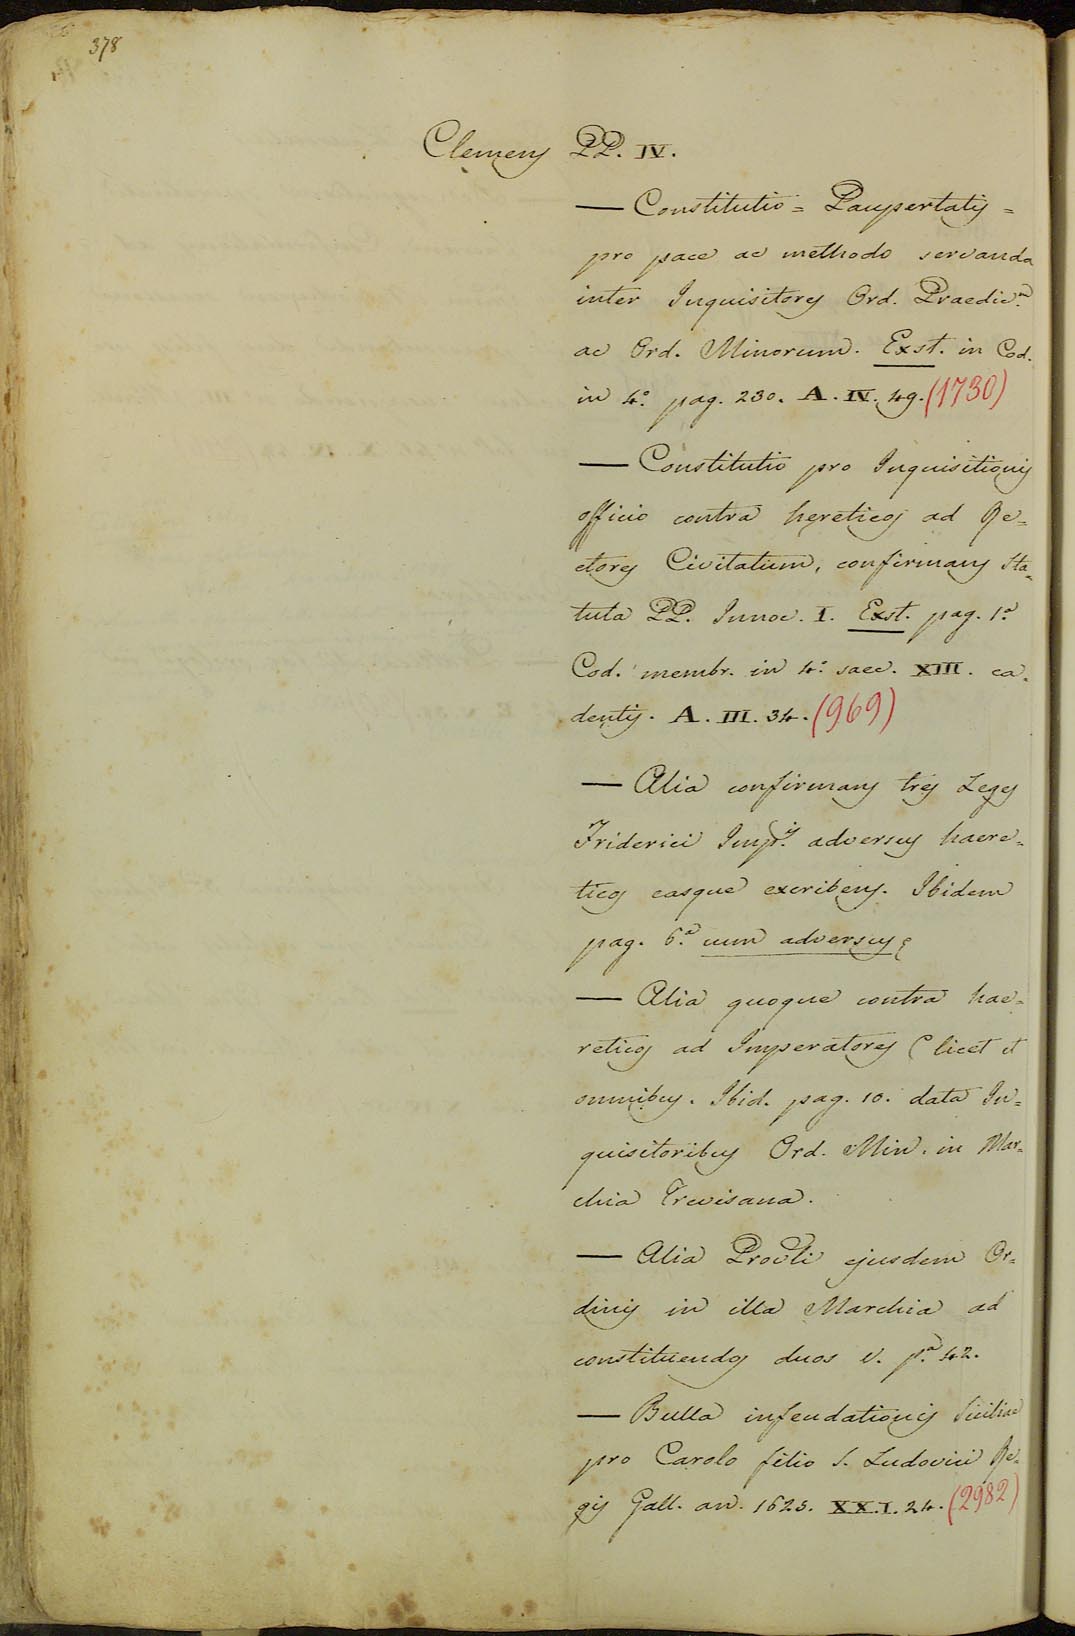 378
Clemens PP. IV.
— Constitutio = Paupertatis =
pro pace ac methodo servanda
inter Inquisitores Ord. Praedic.m
ac Ord. Minorum. Exst. in Cod.
in 4.º pag. 230. A. IV. 49. (1730)
— Constitutio pro Inquisitionis
officio contra hereticos ad Re=
ctores Civitatum, confirmans Sta=
tuta PP. Innoc. I. Exst. pag. 1.ª
Cod. membr. in 4.º saec. XIII. ca=
dentis. A. III. 34. (969)
— Alia confirmans tres Leges
Friderici Imp.is adversus haere=
ticos easque excribens. Ibidem
pag. 6.ª cum adversus
— Alia quoque contra hae=
reticos ad Imperatores (licet et
omnibus. Ibid. pag. 10. data In=
quisitoribus Ord. Min. in Mar=
chia Trevisana.
— Alia Provli ejusdem Or=
dinis in illa Marchia ad
constituendos duos v. p.ª 42.
— Bulla infeudationis Siciliae
pro Carolo filio S. Ludovici Re=
gis Gall. an. 1625. XX.I. 24. (2982)